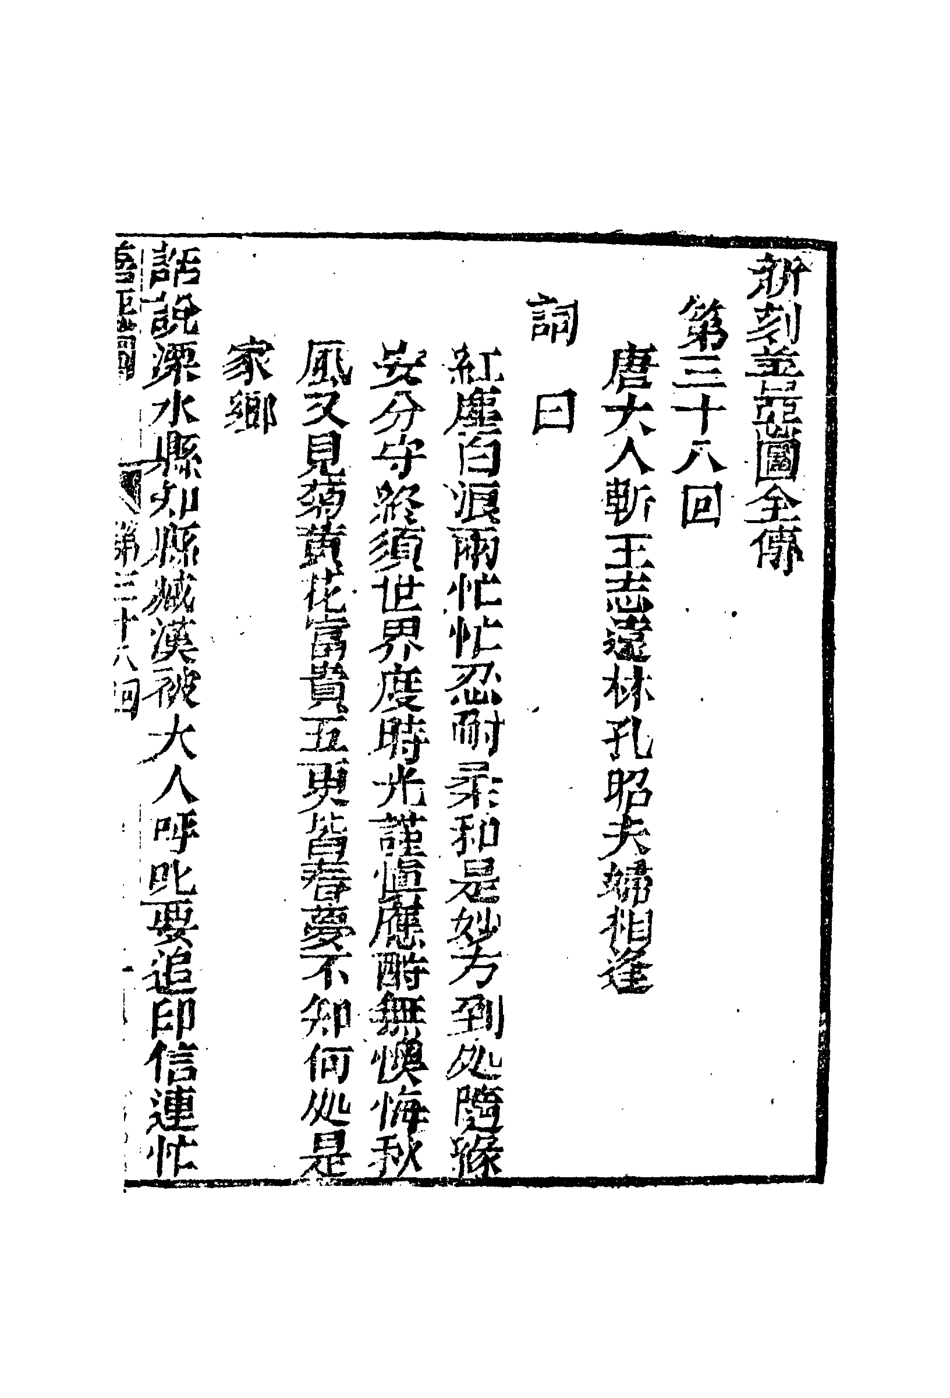 新刻善惡圖全傳
第三十八回
唐大人斬王志遠 林孔昭夫婦相逢
詞曰
紅塵白浪兩忙忙忍耐柔和是妙方到処隨緣
安分守終須世界度時光謹慎應酧無懊悔秋
風又見菊黄花富貴五更皆春夢不知何処是
家鄉
話說溧水縣知縣臧漢被大人呼叱要追印信連忙
善惡圖 第三十八回